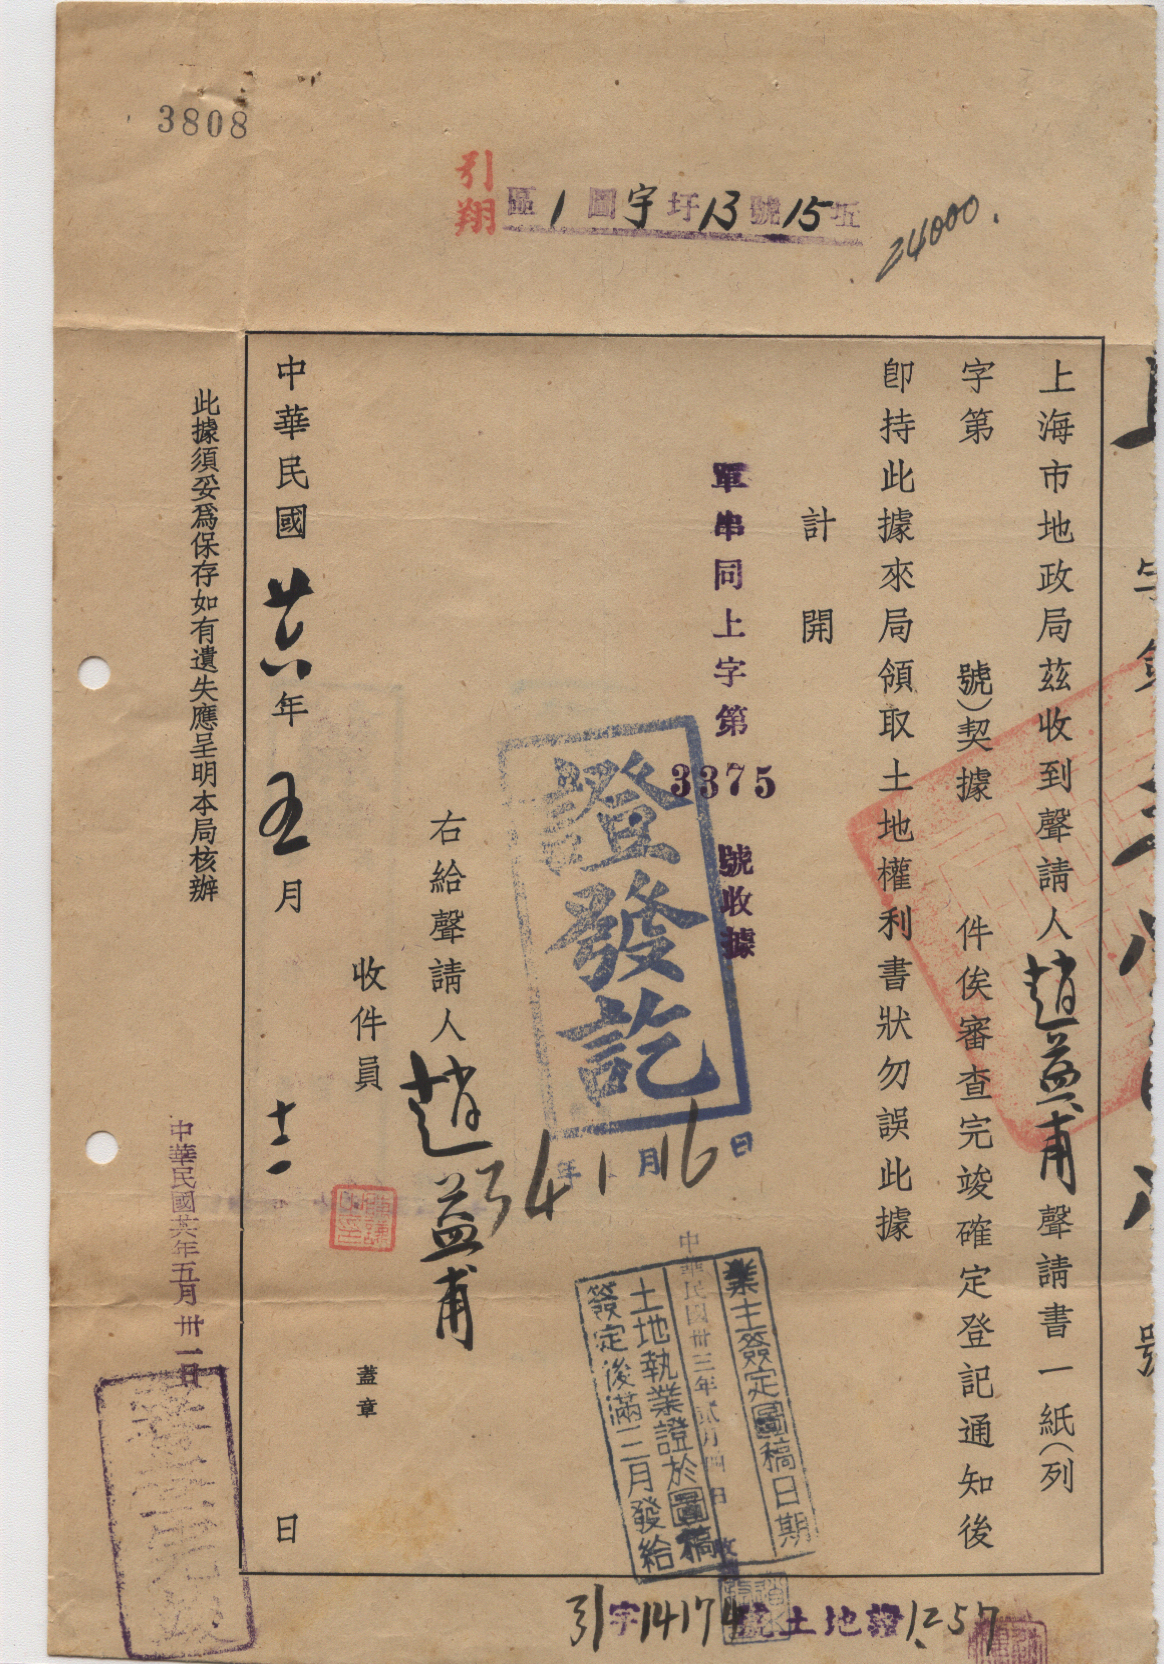 3808
引翔區1圖宇圩13號15坵
24000.
上海市地政局茲收到聲請人趙益甫聲請書一紙(列
字第　號)契據　件俟審查完竣確定登記通知後
卽持此據來局領取土地權利書狀勿誤此據
計開
單串同上字第3375號收據
證發訖
34年1月16日
右給聲請人趙益甫
收件員
蓋章
中華民國廿六年五月十二日
此據須妥爲保存如有遺失應呈明本局核辦
中華民國廿六年五月卅一日
業主簽定圖稿日期
中華民國卅三年貳月四日
土地執業證於圖稿
簽定後滿三月發給
引字14174號土地證1257